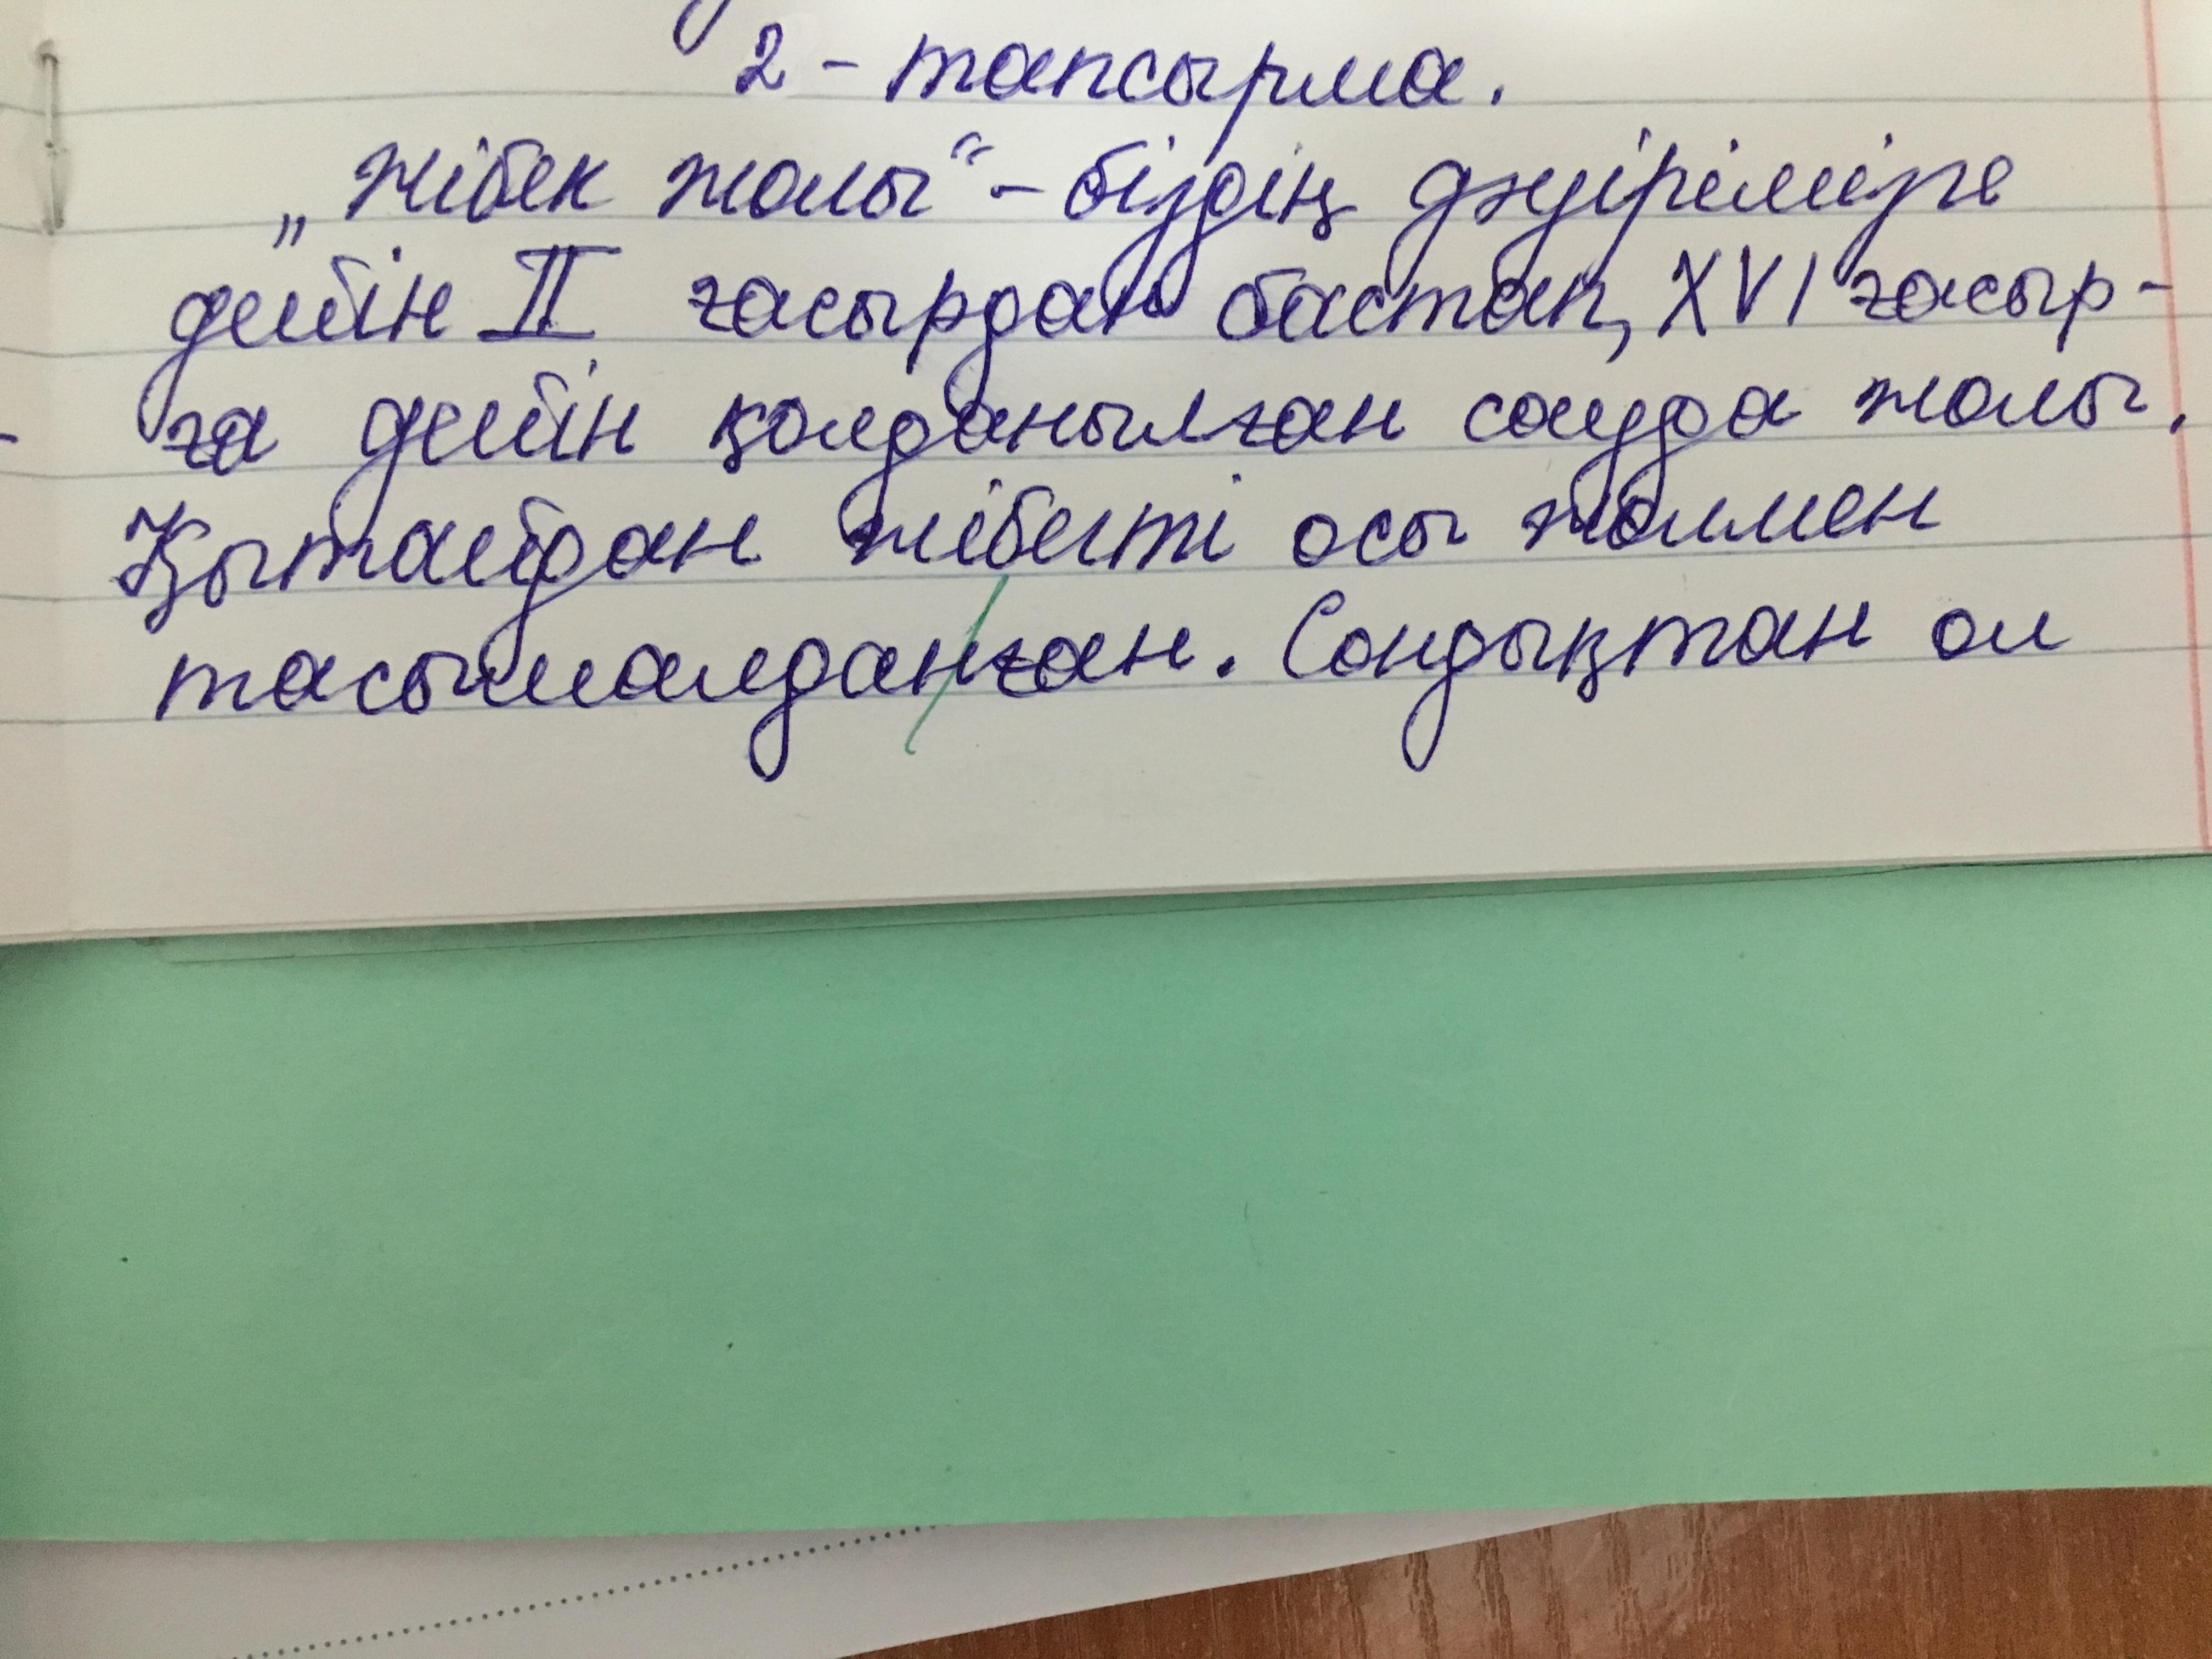 2 - тапсырма.
„Жібек жолы“ - біздің дәуірімізге
дейін II ғасырдан бастап, XVI ғасыр-
ға дейін қолданылған сауда жолы.
Қытайдан жібекті осы жолмен
тасымалданған. Сондықтан ол